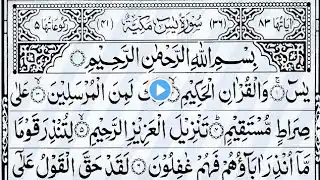 اٰیَاتُهَا ۸۳ (۳۶) سُوْرَةُ یٰسٓ مَكِّیَّةٌ (۴۱) رُكُوْعَاتُهَا ۵
بِسْمِ اللّٰهِ الرَّحْمٰنِ الرَّحِیْمِ
یٰسٓ وَالْقُرْاٰنِ الْحَكِیْمِ لَمِنَ الْمُرْسَلِیْنَ عَلٰی
صِرَاطٍ مُّسْتَقِیْمٍ تَنْزِیْلَ الْعَزِیْزِ الرَّحِیْمِ لِتُنْذِرَ قَوْمًا
مَّاۤ اُنْذِرَ اٰبَآؤُهُمْ فَهُمْ غٰفِلُوْنَ لَقَدْ حَقَّ الْقَوْلُ عَلٰۤی